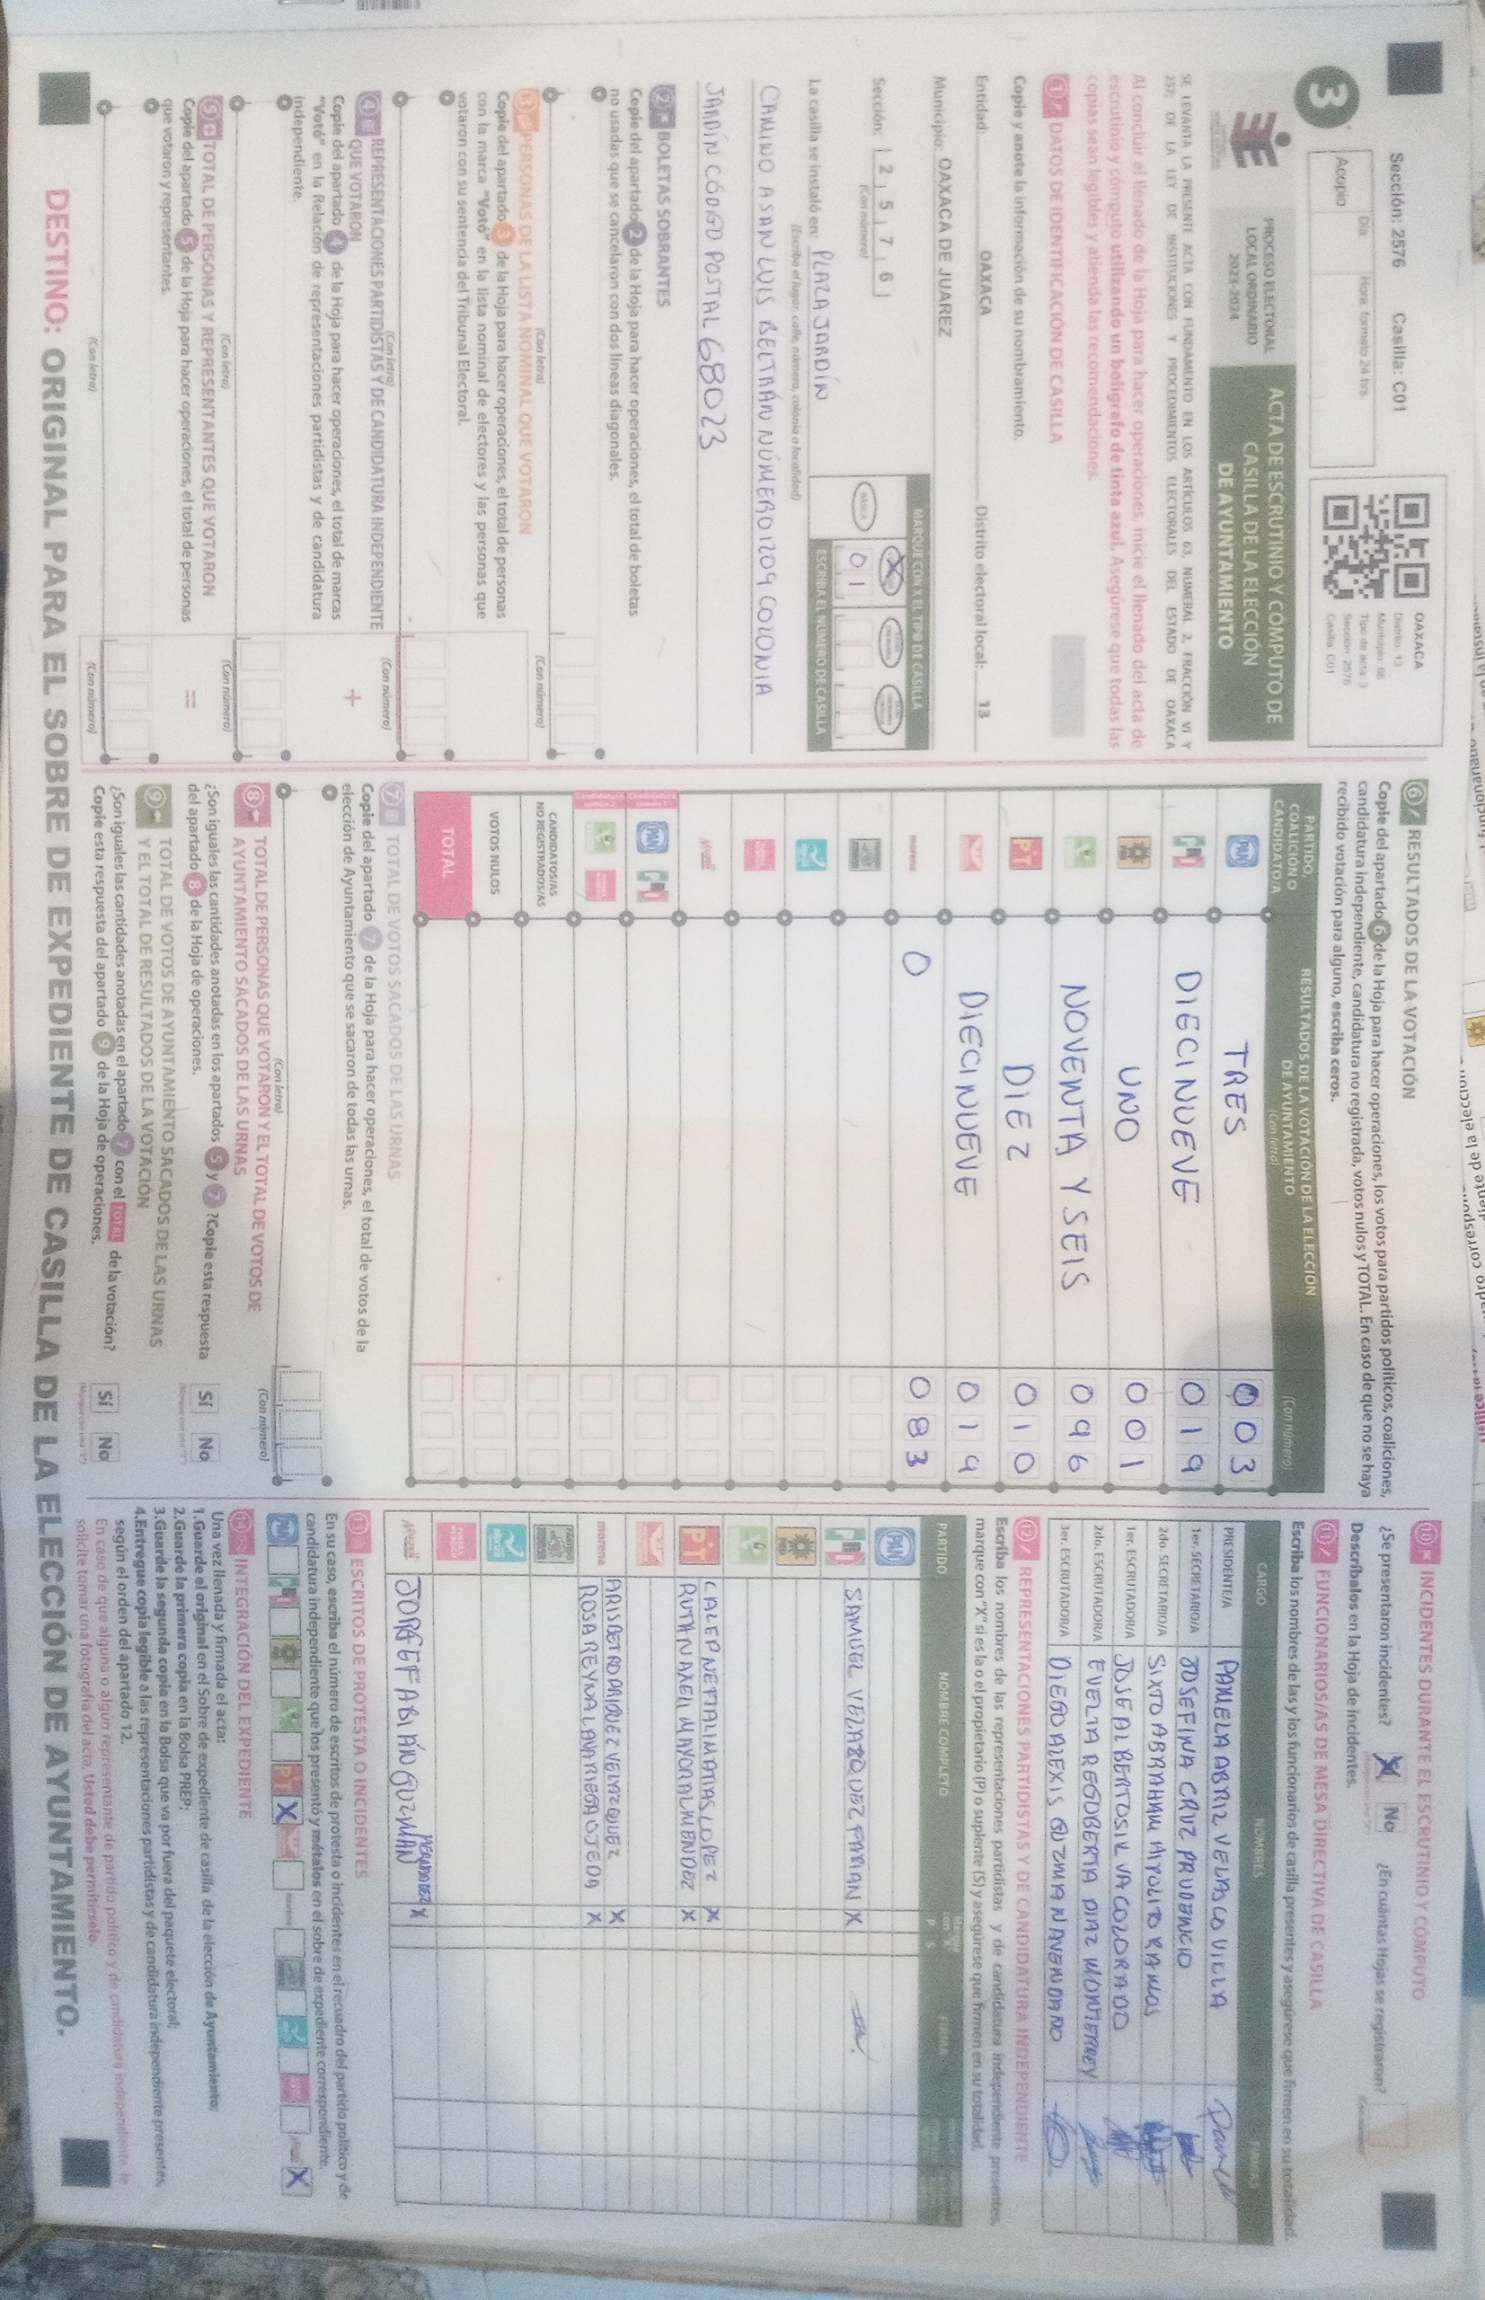 Sección: 2576 Casilla: C01
Día Hora formato 24 hrs.
Acopio
OAXACA
Distrito: 13
Tipo de acta: 3
Sección: 2576
Casilla: C01
3
PROCESO ELECTORAL
LOCAL ORDINARIO
2023-2024
ACTA DE ESCRUTINIO Y CÓMPUTO DE
CASILLA DE LA ELECCIÓN
DE AYUNTAMIENTO
SE LEVANTA LA PRESENTE ACTA CON FUNDAMENTO EN LOS ARTÍCULOS 63, NUMERAL 2, FRACCIÓN VI Y
257; DE LA LEY DE INSTITUCIONES Y PROCEDIMIENTOS ELECTORALES DEL ESTADO DE OAXACA
Al concluir el llenado de la Hoja para hacer operaciones, inicie el llenado del acta de
escrutinio y cómputo utilizando un bolígrafo de tinta azul. Asegúrese que todas las
copias sean legibles y atienda las recomendaciones.
1 DATOS DE IDENTIFICACIÓN DE CASILLA
Copie y anote la información de su nombramiento.
Entidad: OAXACA Distrito electoral local: 13
Municipio: OAXACA DE JUAREZ
Sección: 2 5 7 6
(Con número)
MARQUE CON X EL TIPO DE CASILLA
X
0 1
ESCRIBA EL NÚMERO DE CASILLA
La casilla se instaló en: PLAZA JARDÍN
(Escriba el lugar, calle, número, colonia o localidad)
CAMINO A SAN LUIS BELTRÁN NÚMERO 1209 COLONIA
JARDÍN CÓDIGO POSTAL 68023
2 BOLETAS SOBRANTES
Copie del apartado 2 de la Hoja para hacer operaciones, el total de boletas
no usadas que se cancelaron con dos líneas diagonales.
(Con letra) (Con número)
3 PERSONAS DE LA LISTA NOMINAL QUE VOTARON
Copie del apartado 3 de la Hoja para hacer operaciones, el total de personas
con la marca "Votó" en la lista nominal de electores y las personas que
votaron con su sentencia del Tribunal Electoral.
(Con letra) (Con número)
4 REPRESENTACIONES PARTIDISTAS Y DE CANDIDATURA INDEPENDIENTE
QUE VOTARON
Copie del apartado 4 de la Hoja para hacer operaciones, el total de marcas
"Votó" en la Relación de representaciones partidistas y de candidatura
independiente.
+
(Con letra) (Con número)
5 TOTAL DE PERSONAS Y REPRESENTANTES QUE VOTARON
Copie del apartado 5 de la Hoja para hacer operaciones, el total de personas
que votaron y representantes.
=
(Con letra) (Con número)
6 RESULTADOS DE LA VOTACIÓN
Copie del apartado 6 de la Hoja para hacer operaciones, los votos para partidos políticos, coaliciones,
candidatura independiente, candidatura no registrada, votos nulos y TOTAL. En caso de que no se haya
recibido votación para alguno, escriba ceros.
PARTIDO,
COALICIÓN O
CANDIDATO/A
RESULTADOS DE LA VOTACIÓN DE LA ELECCIÓN
DE AYUNTAMIENTO
(Con letra) (Con número)
PAN TRES 003
PRI DIECINUEVE 019
PRD UNO 001
NOVENTA Y SEIS 096
PT DIEZ 010
DIECINUEVE 019
morena 0 083
PAN PRI
CANDIDATOS/AS
NO REGISTRADOS/AS
VOTOS NULOS
TOTAL
7 TOTAL DE VOTOS SACADOS DE LAS URNAS
Copie del apartado 7 de la Hoja para hacer operaciones, el total de votos de la
elección de Ayuntamiento que se sacaron de todas las urnas.
(Con letra) (Con número)
8 TOTAL DE PERSONAS QUE VOTARON Y EL TOTAL DE VOTOS DE
AYUNTAMIENTO SACADOS DE LAS URNAS
¿Son iguales las cantidades anotadas en los apartados 5 y 7 ? Copie esta respuesta
del apartado 8 de la Hoja de operaciones. Sí No
9 TOTAL DE VOTOS DE AYUNTAMIENTO SACADOS DE LAS URNAS
Y EL TOTAL DE RESULTADOS DE LA VOTACIÓN
¿Son iguales las cantidades anotadas en el apartado 7 con el TOTAL de la votación?
Copie esta respuesta del apartado 9 de la Hoja de operaciones. Sí No
10 INCIDENTES DURANTE EL ESCRUTINIO Y CÓMPUTO
¿Se presentaron incidentes? X No ¿En cuántas Hojas se registraron?
Descríbalos en la Hoja de incidentes.
11 FUNCIONARIOS/AS DE MESA DIRECTIVA DE CASILLA
Escriba los nombres de las y los funcionarios de casilla presentes y asegúrese que firmen en su totalidad.
CARGO NOMBRES FIRMAS
PRESIDENTE/A PAMELA ABRIZ VELASCO VILLA
1er. SECRETARIO/A JOSEFINA CRUZ PRUDENCIO
2do. SECRETARIO/A SIXTO ABRAHAM HIPOLITO RAMOS
1er. ESCRUTADOR/A JOSE ALBERTO SILVA COLORADO
2do. ESCRUTADOR/A EVELIA REGOBERTA DIAZ MONTERREY
3er. ESCRUTADOR/A DIEGO ALEXIS GUZMAN AVENDAÑO
12 REPRESENTACIONES PARTIDISTAS Y DE CANDIDATURA INDEPENDIENTE
Escriba los nombres de las representaciones partidistas y de candidatura independiente presentes,
marque con "X" si es la o el propietario (P) o suplente (S) y asegúrese que firmen en su totalidad.
PARTIDO NOMBRE COMPLETO P S FIRMA
PAN
PRI SAMUEL VELAZQUEZ FARIAN X
PRD
PT CALEP NEFTALI MATIAS LOPEZ X
RUTH NAXELI MAYORAL MENDEZ X
morena X
ROSA REYNA LAVARIEGA OJEDA X
JORGE FABIÁN GUZMÁN X
13 ESCRITOS DE PROTESTA O INCIDENTES
En su caso, escriba el número de escritos de protesta o incidentes en el recuadro del partido político y de
candidatura independiente que los presentó y métalos en el sobre de expediente correspondiente.
PT X X
14 INTEGRACIÓN DEL EXPEDIENTE
Una vez llenada y firmada el acta:
1.Guarde el original en el Sobre de expediente de casilla de la elección de Ayuntamiento;
2.Guarde la primera copia en la Bolsa PREP;
3.Guarde la segunda copia en la Bolsa que va por fuera del paquete electoral;
4.Entregue copia legible a las representaciones partidistas y de candidatura independiente presentes,
según el orden del apartado 12.
En caso de que alguna o algún representante de partido político y de candidatura independiente, le
solicite tomar una fotografía del acta, Usted debe permitírselo.
DESTINO: ORIGINAL PARA EL SOBRE DE EXPEDIENTE DE CASILLA DE LA ELECCIÓN DE AYUNTAMIENTO.